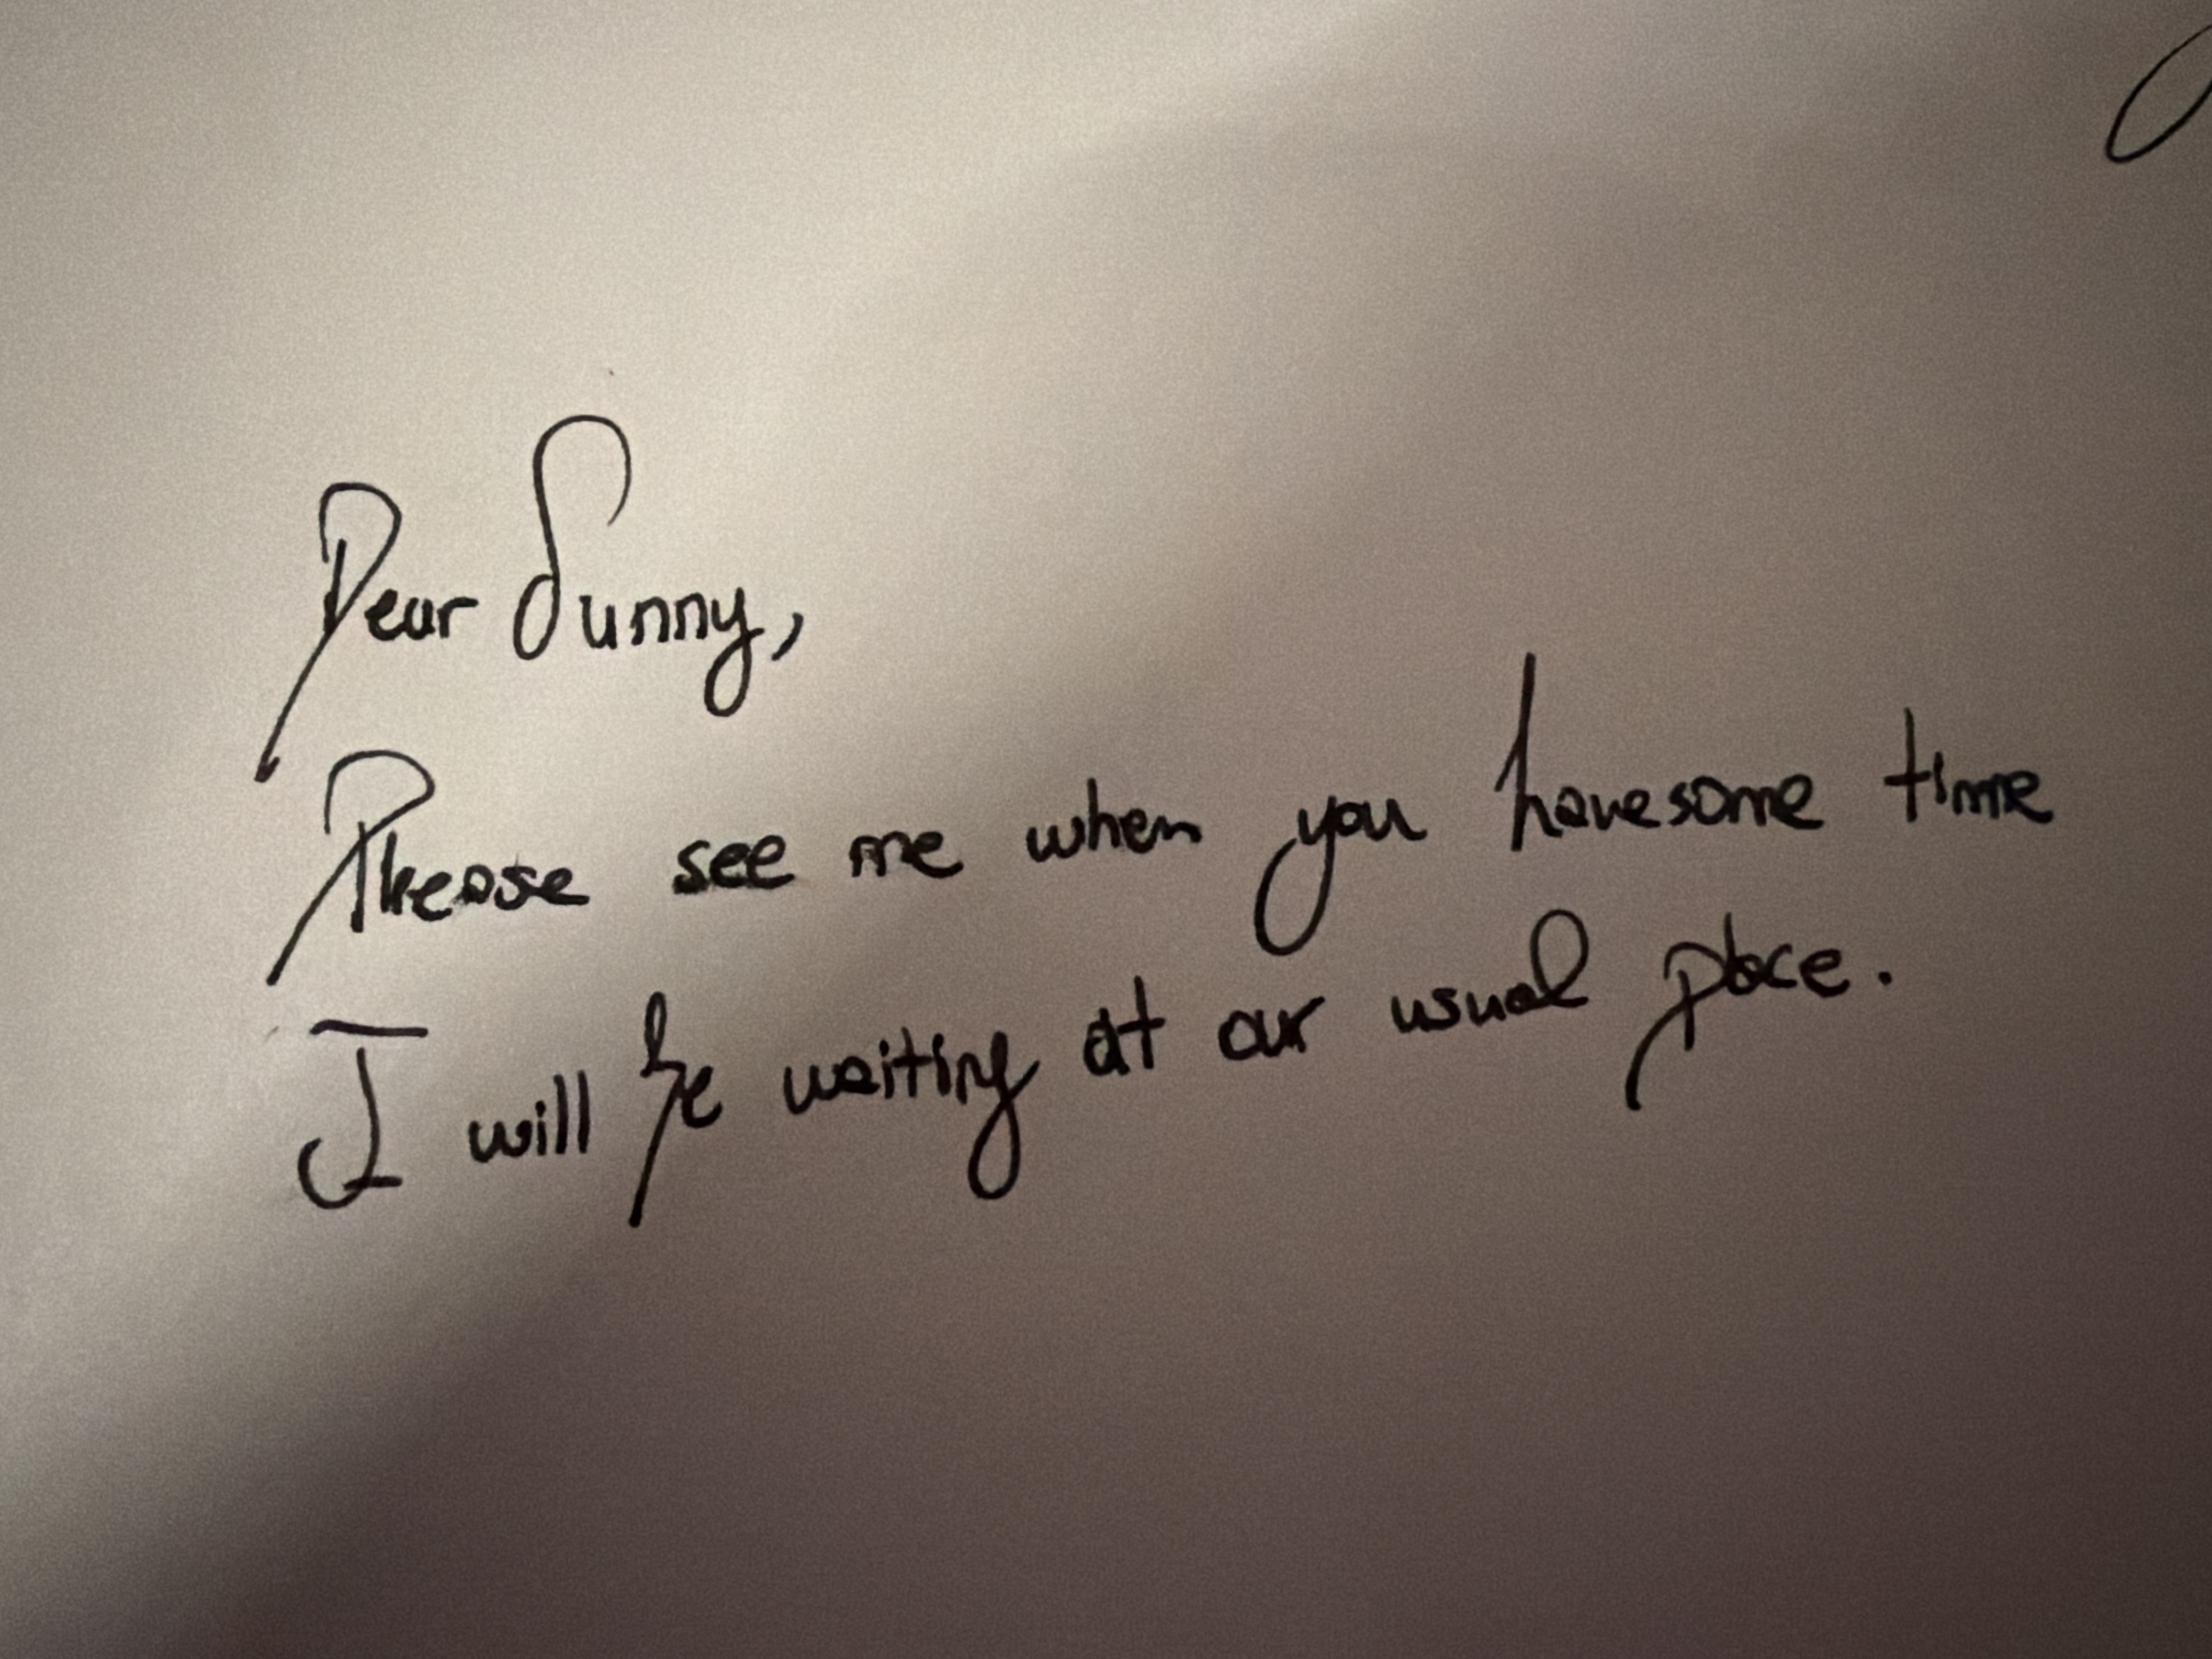 Dear Sunny,
Please see me when you have some time
I will be waiting at our usual place.